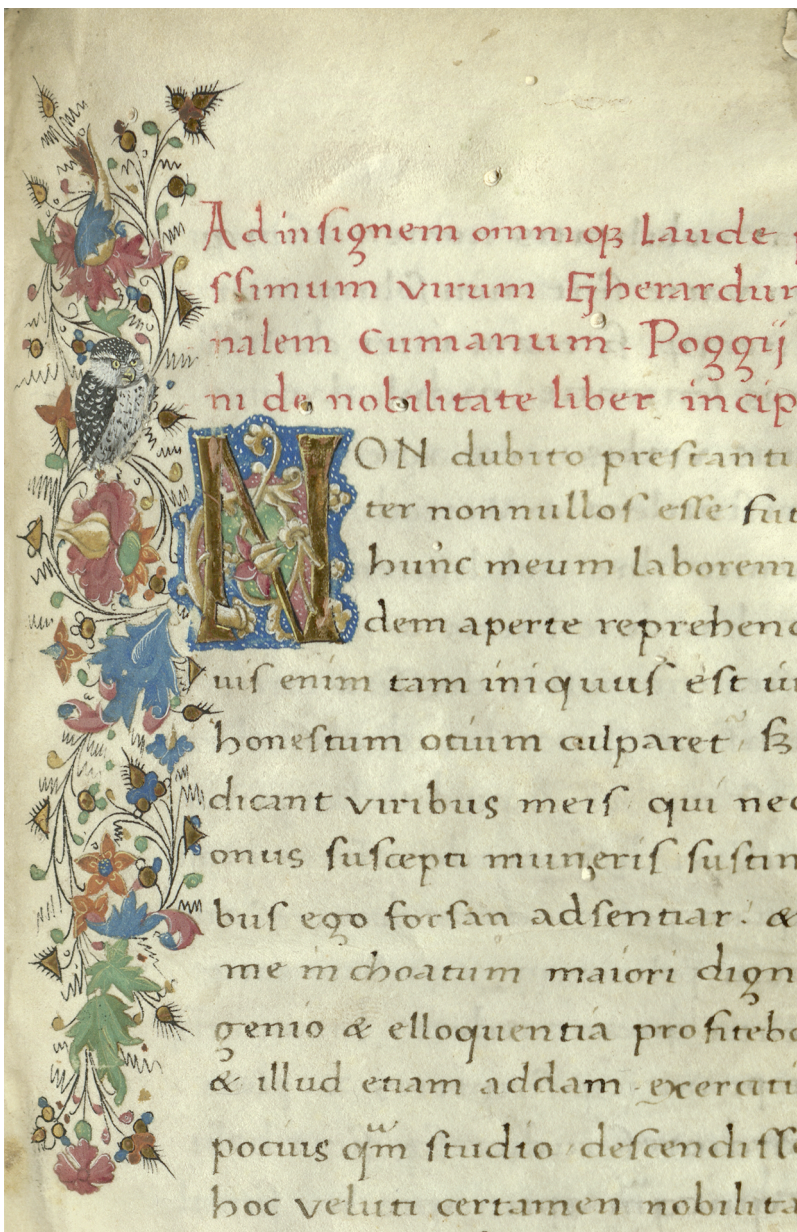 Ad insignem omniqꝫ laude p
ssimum virum Gherardum
nalem Cumanum. Poggij
ni de nobilitate liber incip
NON dubito prestanti
ter nonnullos esse fut
hunc meum laborem
dem aperte reprehend
uis enim tam iniquus est ui
honestum otium culparet. sꝫ
dicant viribus meis qui nec
onus suscepti muneris sustin
bus ego forsan adsentiar. &
me inchoatum maiori dign
genio & elloquentia profitebo
& illud etiam addam exerciti
pocius qm̃ studio descendisse
hoc veluti certamen nobilita